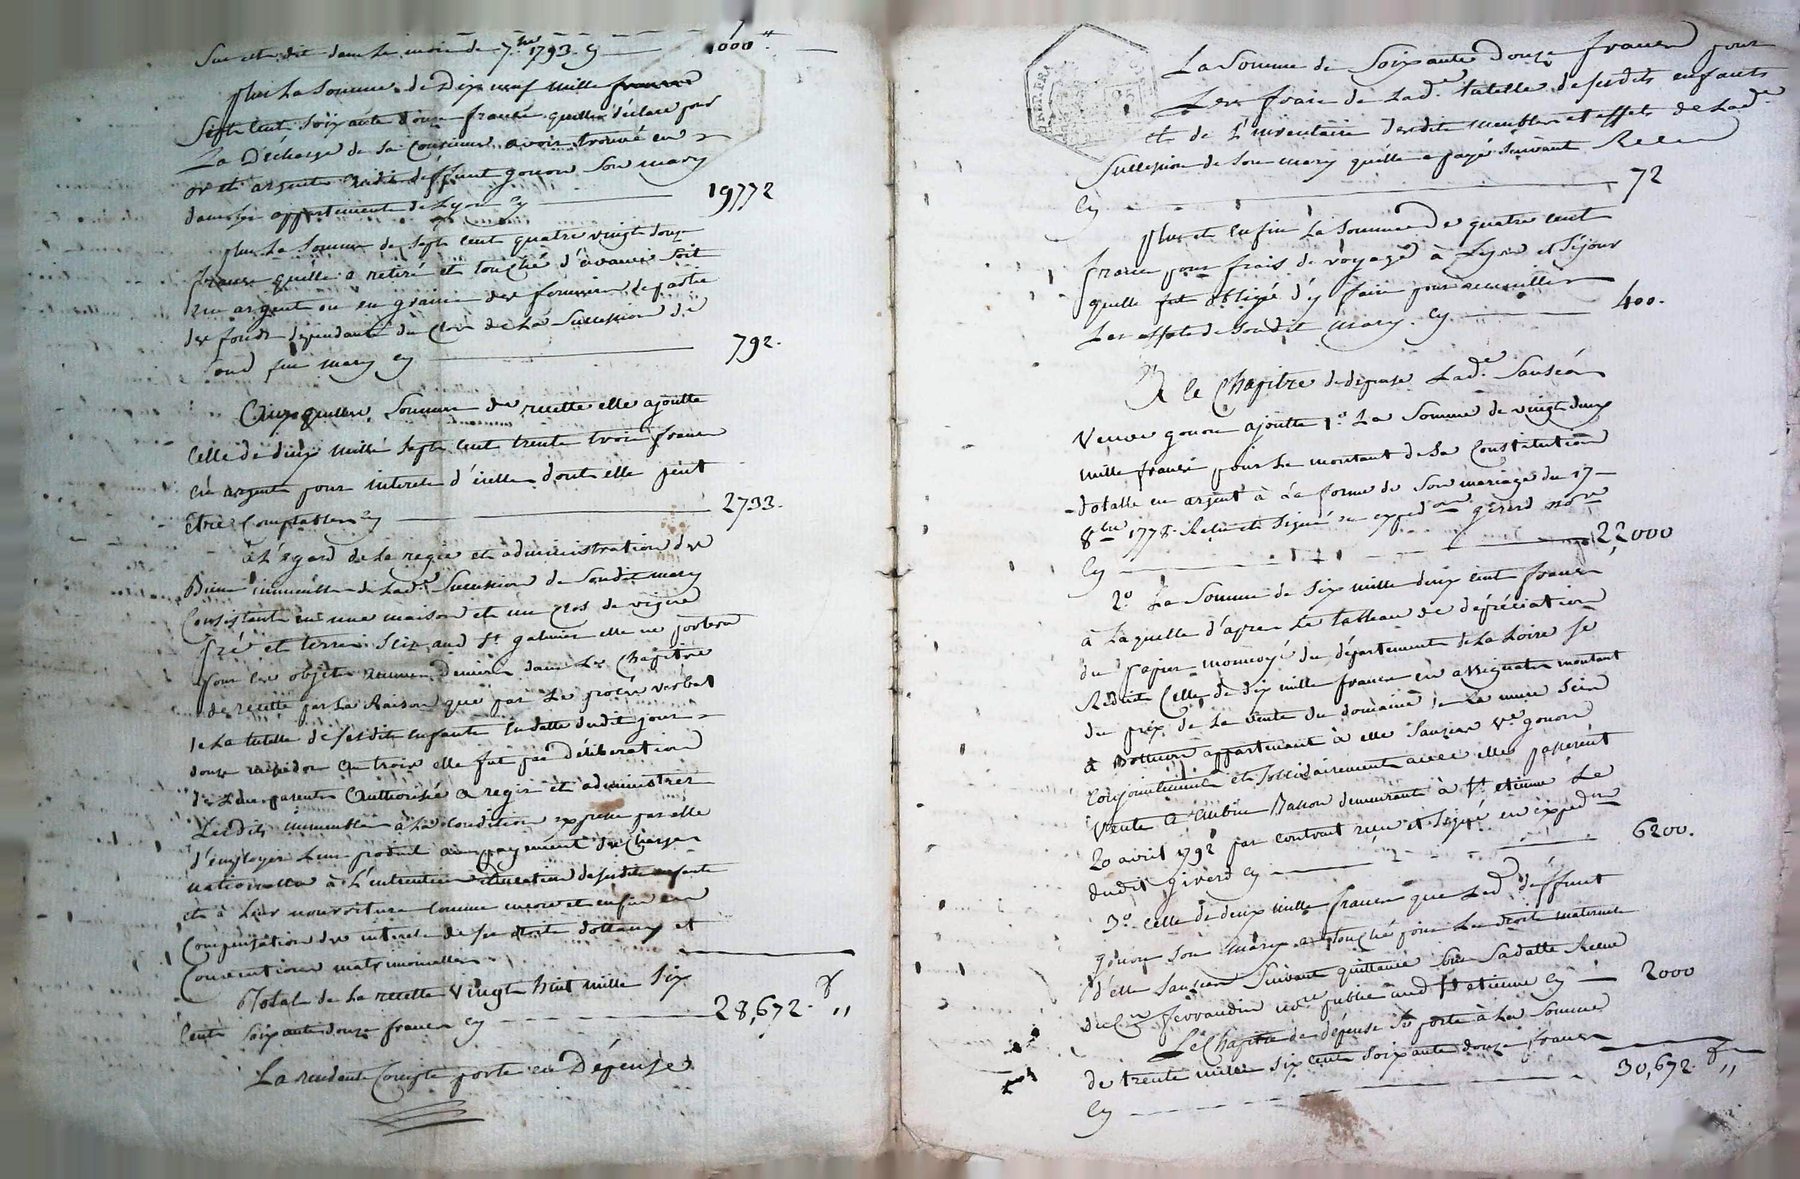 dit dans le mois de 7.bre 1793. Cy 1000"
plus La Somme de Dix neuf mille
Sept Cent Soixante douze francs quelle déclare pour
La Décharge de sa Conscience avoir trouvé en
or et argent dudit deffunt gonon Son mary
dans les appartements de Lyon Cy 19772
plus La Somme de Sept Cent quatre vingt douze
francs quelle a retiré et touché d'avance Soit
en argent ou en grains des fermiers de partie
des fonds dépendants du de La Succession de
Sond. feu mary Cy 792.
Somme de recette elle ajoutte
Celle de deux mille Sept Cent trente trois francs
en argent pour interets d'icelles dont elle peut
Etre Comptable Cy 2733.
à L'égard de la regie et administration des
Biens immeubles de Lad.e Succession de Sondit mary
Consistants en une maison et un Clos de vigne
pré et terres Scis aud St galmier elle ne portera
pour Ces objets aucuns Deniers dans Le Chapitre
de recette par La Raison que par Le procès verbal
de La tutelle desdits Enfants en datte dudit jour
douze an trois elle fut par délibération
des parents Authorisée a regir et administrer
Lesdits immeubles à La Condition expresse par elle
d'employer Leur produit au payement des Charges
nationalles à L'entretien éducation desdits enfants
et à Leur nourriture Comme encore et enfin en
Compensation des interets de Ses droits dottaux et
Conventions matrimonialles
Total de La recette vingt huit mille Six
Cents Soixante douze francs Cy 28,672. f "
La rendante Compte porte en Dépense
La Somme de Soixante Douze francs pour
Les frais de Lad.e tutelle desdits enfants
et de L'inventaire desdits meubles et effets de Lad.e
Succession de Son mary quelle a payé Suivant
Cy 72
Plus et Enfin La Somme de quatre Cent
francs pour frais de voyage à Lyon et Séjour
quelle fut obligée d'y faire pour recueillir
Les effets de Sondit mary. Cy 400.
A Ce Chapitre de dépense Lad.e Sauzéa
Veuve gonon ajoutte 1.o La Somme de vingt deux
mille francs pour Le montant de Sa Constitution
dotalle en argent à La forme de Son mariage du 17
8bre 1778. Reçu et Signé en exped.on girerd no.re
Cy 22,000
2.o La Somme de Six mille deux Cent francs
à Laquelle d'après Le tableau de dépréciation
du papier monnoyé du département de La Loire Se
Réduit Celle de dix mille francs en assignats montant
du prix de La vente du domaine de La mure Scis
à appartenant à elle Sauzéa V.e gonon
Conjointement et Sollidairement avec elle passerent
vente à Aubin demeurant à St etienne Le
20 avril 1792 par contrat reçu et Signé en exped.on
dudit girerd Cy 6200.
3.o Celle de deux mille francs que Led. deffunt
gonon Son mary a touché pour Les droits maternels
d'elle Sauzéa Suivant quittance Sous Sa datte Reçue
du C.n fervaudin no.re public aud St etienne Cy 2000
Le Chapitre de dépense Se porte à La Somme
de trente mille Six Cent Soixante douze francs
Cy 30,672. f "